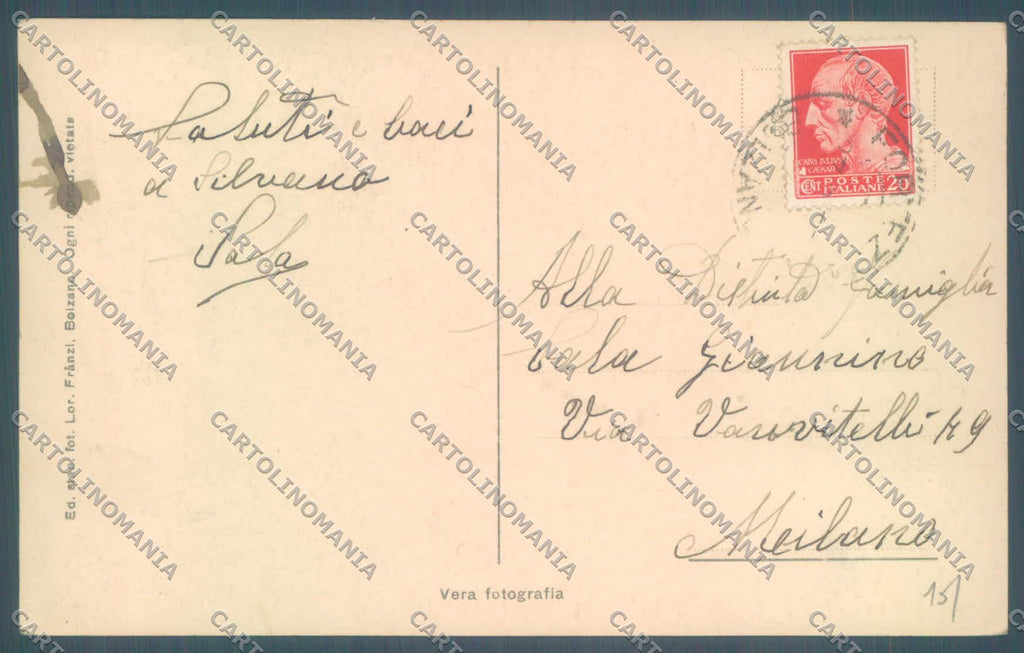 Saluti e baci
a Silvano
Sala
CAIVS IVLIVS
CAESAR
CENT POSTE ITALIANE 20
Alla Distinta famiglia
Sala Giannino
Via Vanvitelli 49
Milano
Vera fotografia
15
Ed. stab. fot. Lor. Fränzl, Bolzano. Ogni riprod. vietata
CARTOLINOMANIA